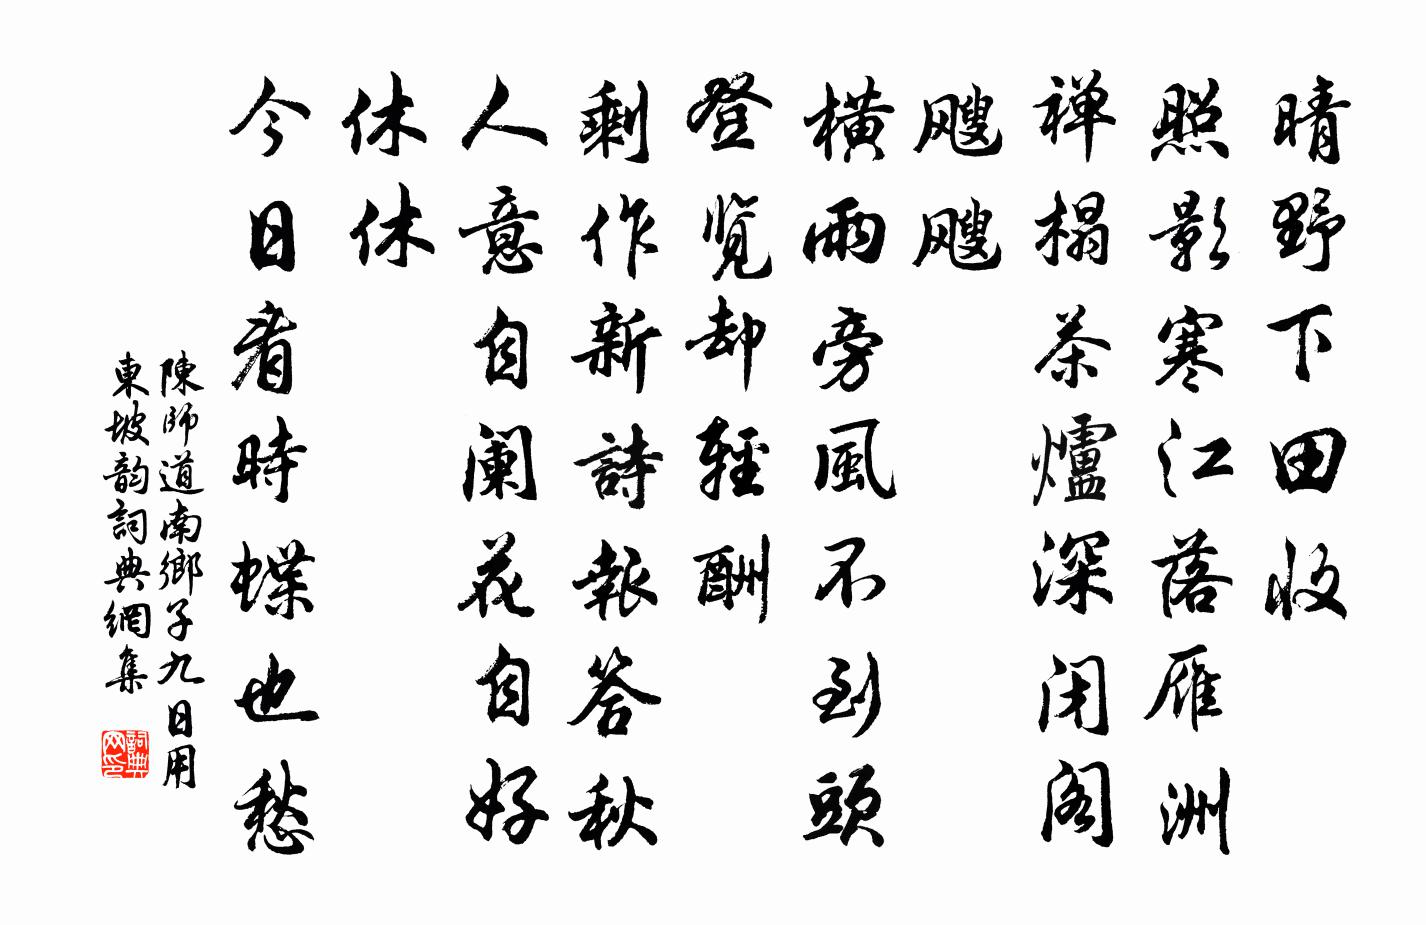 晴野下田收
照影寒江落雁洲
禅榻茶爐深闭阁
飕飕
橫雨旁風不到頭
登览却輕酬
剩作新詩報答秋
人意自阑花自好
休休
今日看時蝶也愁
陳師道南鄉子九日用
東坡韵詞典網集
詞典
网印